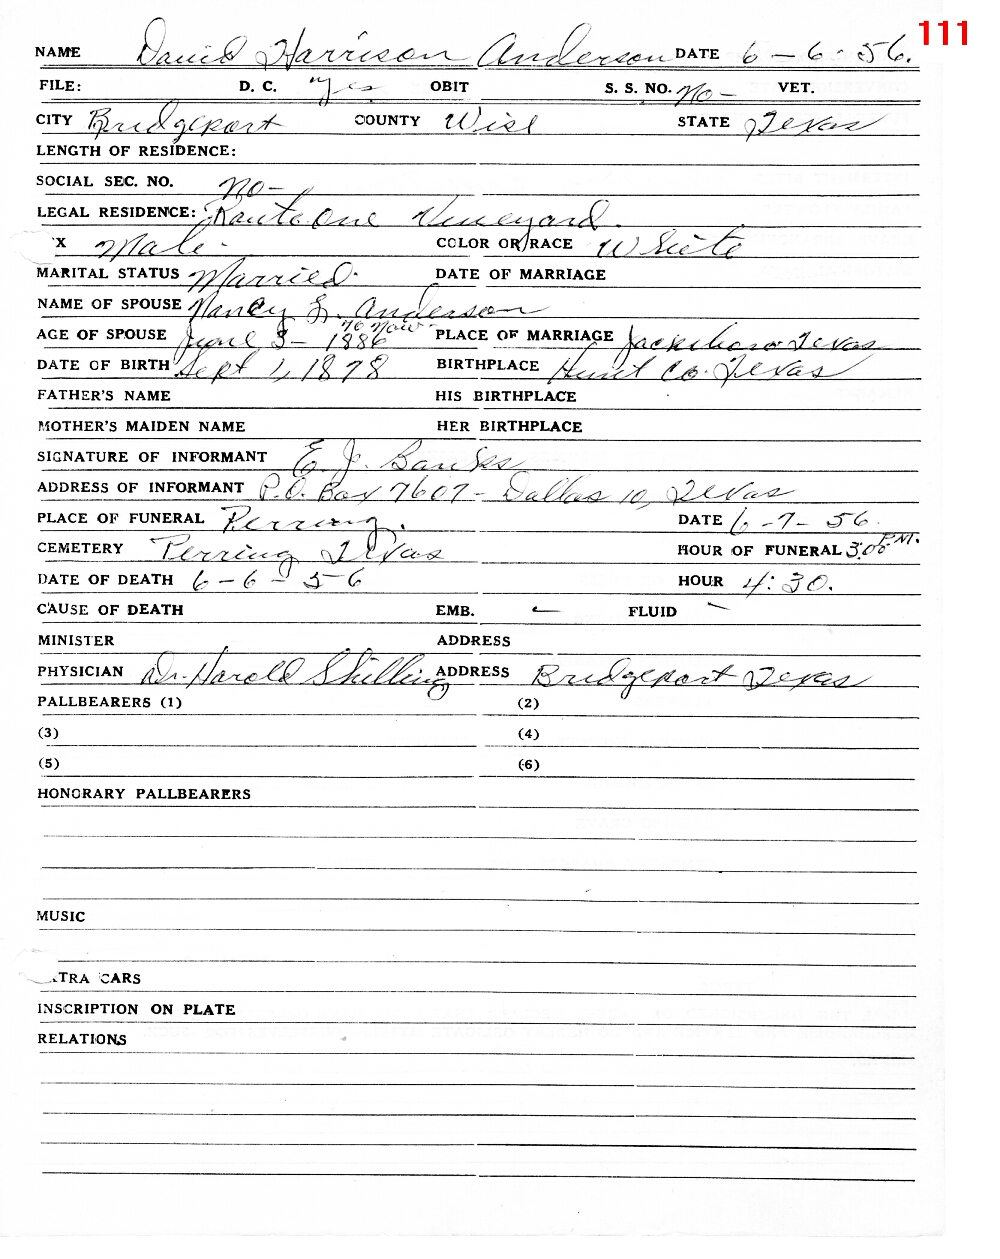 111
NAME David Harrison Anderson DATE 6-6-56.
FILE: D. C. Yes OBIT S. S. NO. no- VET.
CITY Bridgeport COUNTY Wise STATE Texas
LENGTH OF RESIDENCE:
SOCIAL SEC. NO. no-
LEGAL RESIDENCE: Route One Vineyard.
X Male- COLOR OR RACE White
MARITAL STATUS Married. DATE OF MARRIAGE
NAME OF SPOUSE Nancy L. Anderson
AGE OF SPOUSE June 3- 1886 70 now- PLACE OF MARRIAGE Jacksboro Texas
DATE OF BIRTH Sept 1, 1878 BIRTHPLACE Hunt Co. Texas
FATHER'S NAME HIS BIRTHPLACE
MOTHER'S MAIDEN NAME HER BIRTHPLACE
SIGNATURE OF INFORMANT E. J. Banks
ADDRESS OF INFORMANT P.O. Box 7607- Dallas 10, Texas
PLACE OF FUNERAL Perrin. DATE 6-7-56.
CEMETERY Perrin Texas HOUR OF FUNERAL 3:00 P.M.
DATE OF DEATH 6-6-56 HOUR 4:30.
CAUSE OF DEATH EMB. - FLUID -
MINISTER ADDRESS
PHYSICIAN Dr. Harold Shilling ADDRESS Bridgeport Texas
PALLBEARERS (1) (2)
(3) (4)
(5) (6)
HONORARY PALLBEARERS
MUSIC
TRA CARS
INSCRIPTION ON PLATE
RELATIONS